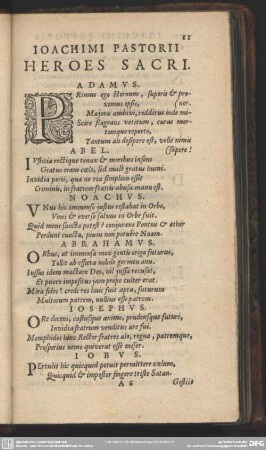 11
IOACHIMI PASTORII
HEROES SACRI.
ADAMVS.
PRimus ego Heroum, superis & pro-
ximus ipsis, (ser.
Majora ambivi, redditus inde mi-
Scire flagrans vetitum, curas mor-
temque reperto,
Tantum ah desipere est, velle nimis
ABEL. (sapere!
IVstitia rectique tenax & moribus insons
Gratus eram cœlo, sed male gratus humi.
Invidia perii, qua ne rea simplicis esset
Criminis, in fratrem fratris abusa manu est.
NOACHVS.
VNus hic immenso justus restabat in Orbe,
Unus & everso salvus in Orbe fuit.
Quid mens sancta potest? conjurans Pontus & æther
Perdunt cuncta, pium non potuêre Noam.
ABRAHAMVS.
ORbus, at immensa mox gentis origo futurus,
Tulit ab effœta nobile germen anu.
Jussus idem mactare Deo, nil jussa recusat,
Et puero impositus jam prope culter erat.
Mira fides! credi res huic fuit apta, futurum
Multorum patrem, nullius esse patrem.
IOSEPHVS.
ORe decens, castusque animo, prudensque futuri,
Invidia fratrum venditus ære fui.
Memphidos hinc Rector fratres alo, regna, patremque,
Prosperius nemo quiverat esse miser.
IOBVS.
PErtulit hic quicquid potuit permittere cœlum,
Quicquid & impostor fingere triste Satan.
A 6 Gestiit